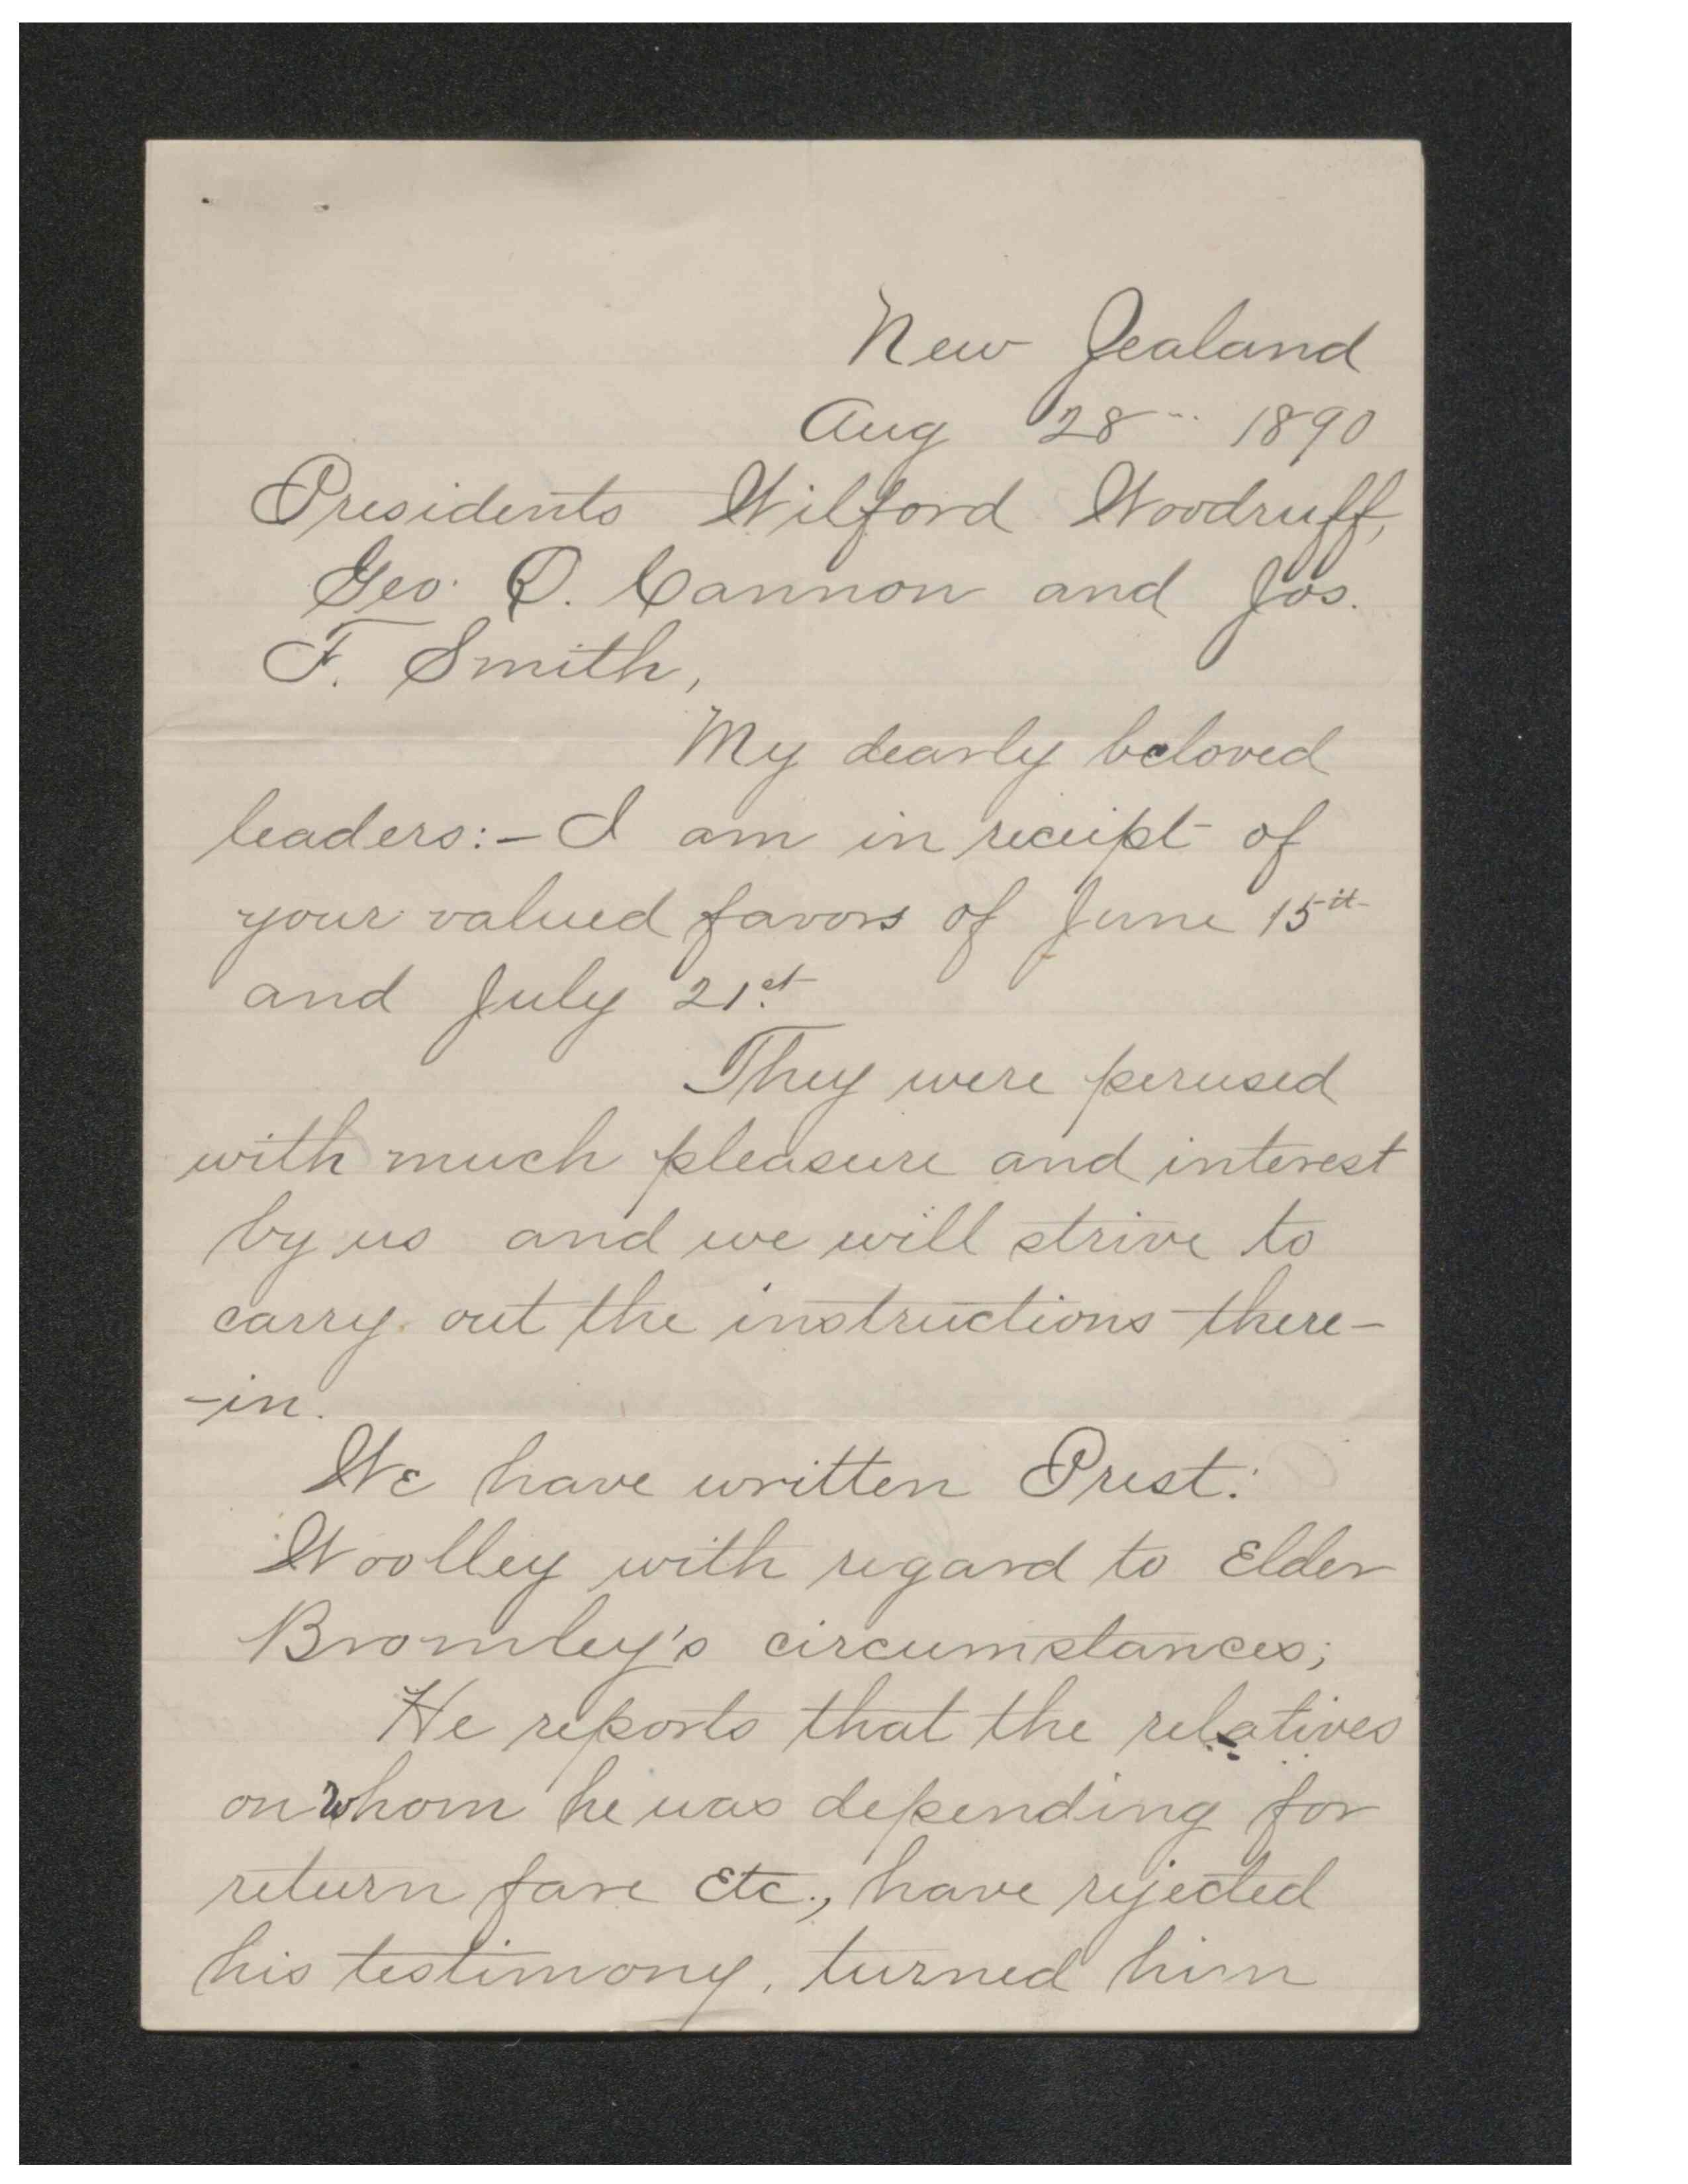 New Zealand
Aug 28th 1890
Presidents Wilford Woodruff,
Geo. Q. Cannon and Jos.
F. Smith,
My dearly beloved
leaders:- I am in receipt of
your valued favors of June 15th
and July 21st
They were perused
with much pleasure and interest
by us and we will strive to
carry out the instructions there-
-in.
We have written Prest.
Woolley with regard to Elder
Bromley's circumstances;
He reports that the relatives
on whom he was depending for
return fare etc., have rejected
his testimony, turned him